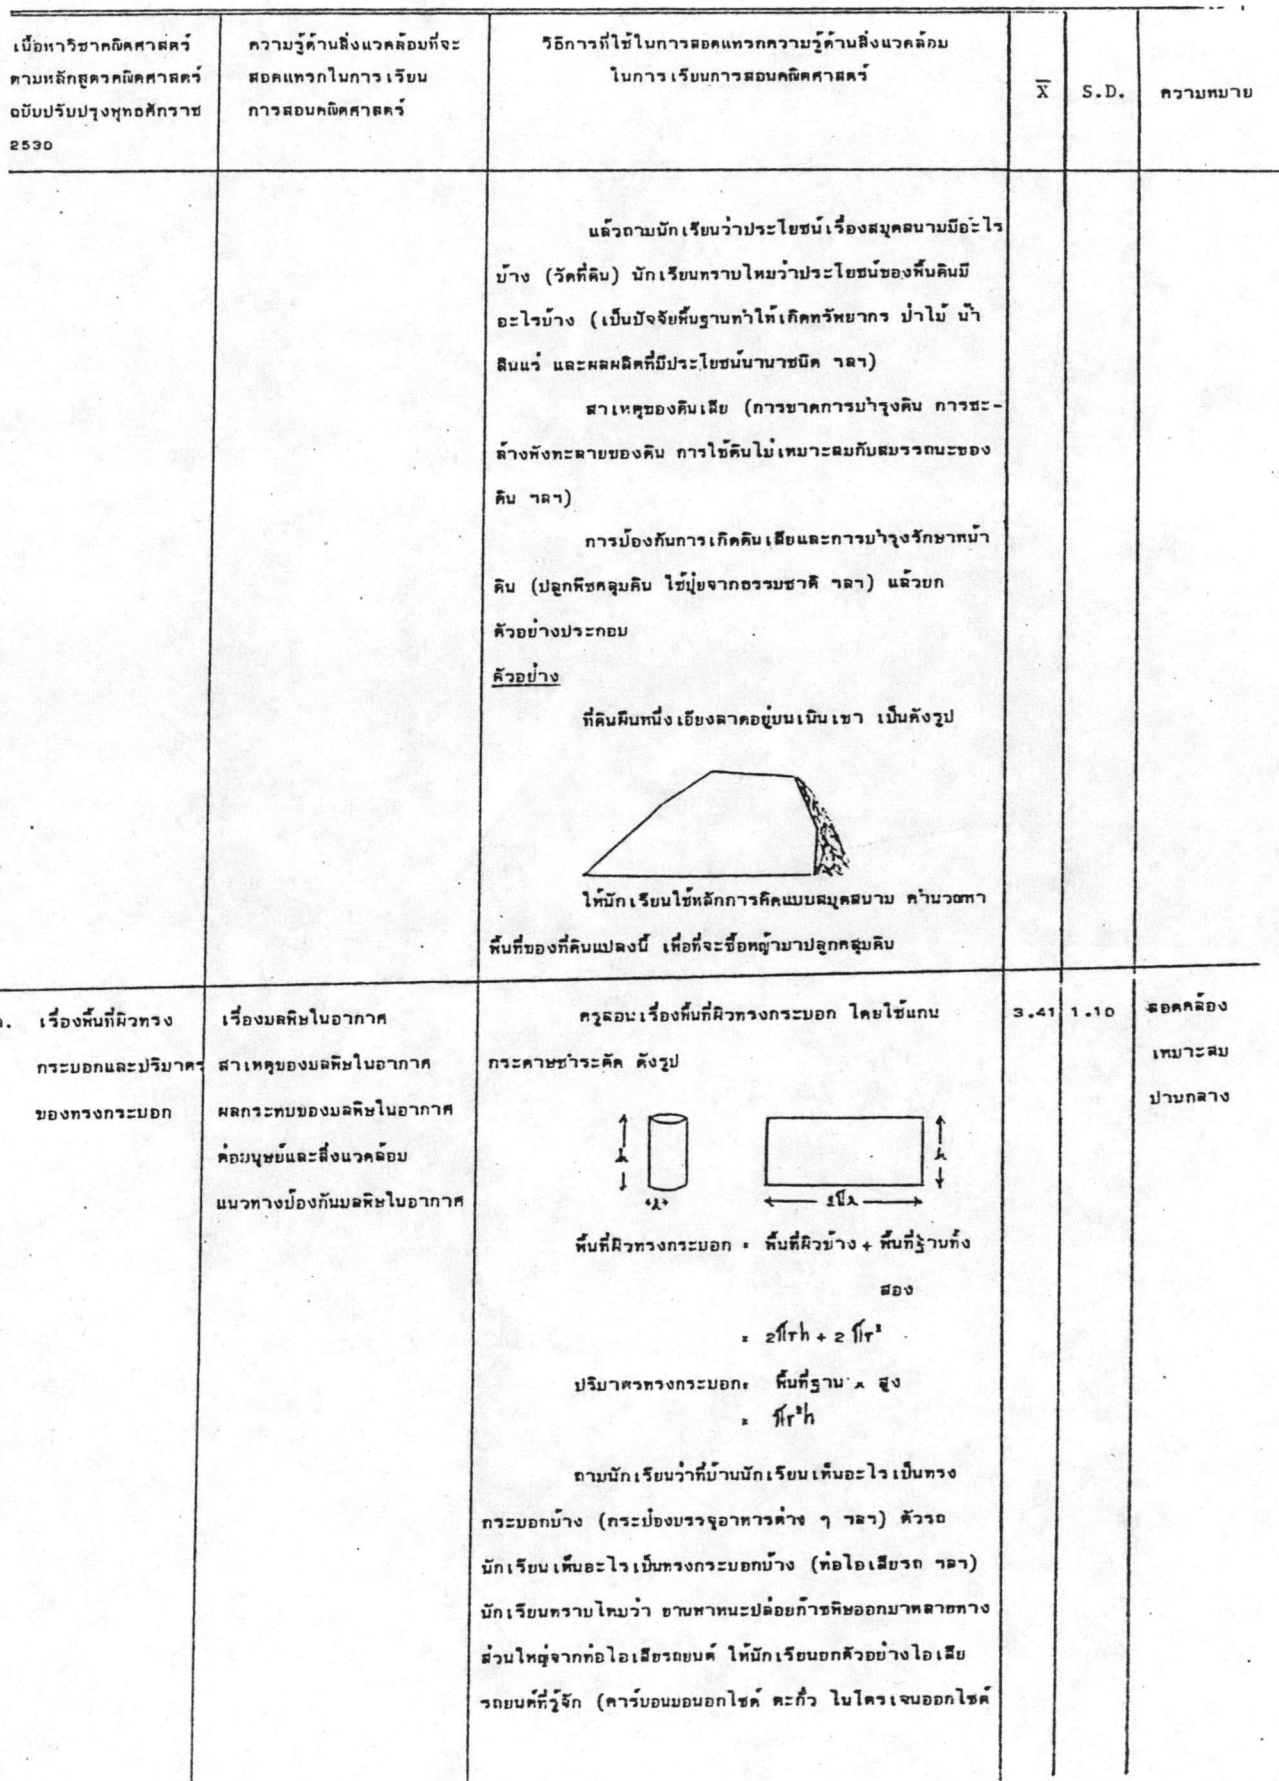 เนื้อหาวิชาคณิตศาสตร์
ตามหลักสูตรคณิตศาสตร์
ฉบับปรับปรุงพุทธศักราช
2530
ความรู้ด้านสิ่งแวดล้อมที่จะ
สอดแทรกในการเรียน
การสอนคณิตศาสตร์
วิธีการที่ใช้ในการสอดแทรกความรู้ด้านสิ่งแวดล้อม
ในการเรียนการสอนคณิตศาสตร์
X̅
S.D.
ความหมาย
แล้วถามนักเรียนว่าประโยชน์เรื่องสมุดสนามมีอะไร
บ้าง (วัดที่ดิน) นักเรียนทราบไหมว่าประโยชน์ของพื้นดินมี
อะไรบ้าง (เป็นปัจจัยพื้นฐานทำให้เกิดทรัพยากร ป่าไม้ น้ำ
สินแร่ และผลผลิตที่มีประโยชน์นานาชนิด ฯลฯ)
สาเหตุของดินเสีย (การขาดการบำรุงดิน การชะ-
ล้างพังทะลายของดิน การใช้ดินไม่เหมาะสมกับสมรรถนะของ
ดิน ฯลฯ)
การป้องกันการเกิดดินเสียและการบำรุงรักษาหน้า
ดิน (ปลูกพืชคลุมดิน ใช้ปุ๋ยจากธรรมชาติ ฯลฯ) แล้วยก
ตัวอย่างประกอบ
ตัวอย่าง
ที่ดินผืนหนึ่งเอียงลาดอยู่บนเนินเขา เป็นดังรูป
ให้นักเรียนใช้หลักการคิดแบบสมุดสนาม คำนวณหา
พื้นที่ของที่ดินแปลงนี้ เพื่อที่จะซื้อหญ้ามาปลูกคลุมดิน
เรื่องพื้นที่ผิวทรง
กระบอกและปริมาตร
ของทรงกระบอก
เรื่องมลพิษในอากาศ
สาเหตุของมลพิษในอากาศ
ผลกระทบของมลพิษในอากาศ
ต่อมนุษย์และสิ่งแวดล้อม
แนวทางป้องกันมลพิษในอากาศ
ครูสอนเรื่องพื้นที่ผิวทรงกระบอก โดยใช้แกน
กระดาษชำระตัด ดังรูป
3.41
1.10
สอดคล้อง
เหมาะสม
ปานกลาง
h
r
h
2πr
พื้นที่ผิวทรงกระบอก = พื้นที่ผิวข้าง + พื้นที่ฐานทั้ง
สอง
= 2πrh + 2πr²
ปริมาตรทรงกระบอก = พื้นที่ฐาน x สูง
= πr²h
ถามนักเรียนว่าที่บ้านนักเรียนเห็นอะไรเป็นทรง
กระบอกบ้าง (กระป๋องบรรจุอาหารต่าง ๆ ฯลฯ) ตัวรถ
นักเรียนเห็นอะไรเป็นทรงกระบอกบ้าง (ท่อไอเสียรถ ฯลฯ)
นักเรียนทราบไหมว่า ยานพาหนะปล่อยก๊าซพิษออกมาหลายทาง
ส่วนใหญ่จากท่อไอเสียรถยนต์ ให้นักเรียนยกตัวอย่างไอเสีย
รถยนต์ที่รู้จัก (คาร์บอนมอนอกไซด์ ตะกั่ว ไนโตรเจนออกไซด์